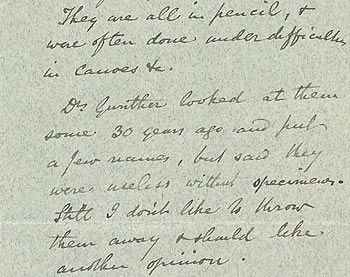 They are all in pencil, &
were often done under difficulties
in canoes &c.
Dr Gunther looked at them
some 30 years ago and put
a few names, but said they
were useless without specimens.
Still I don't like to throw
them away & should like
another opinion.